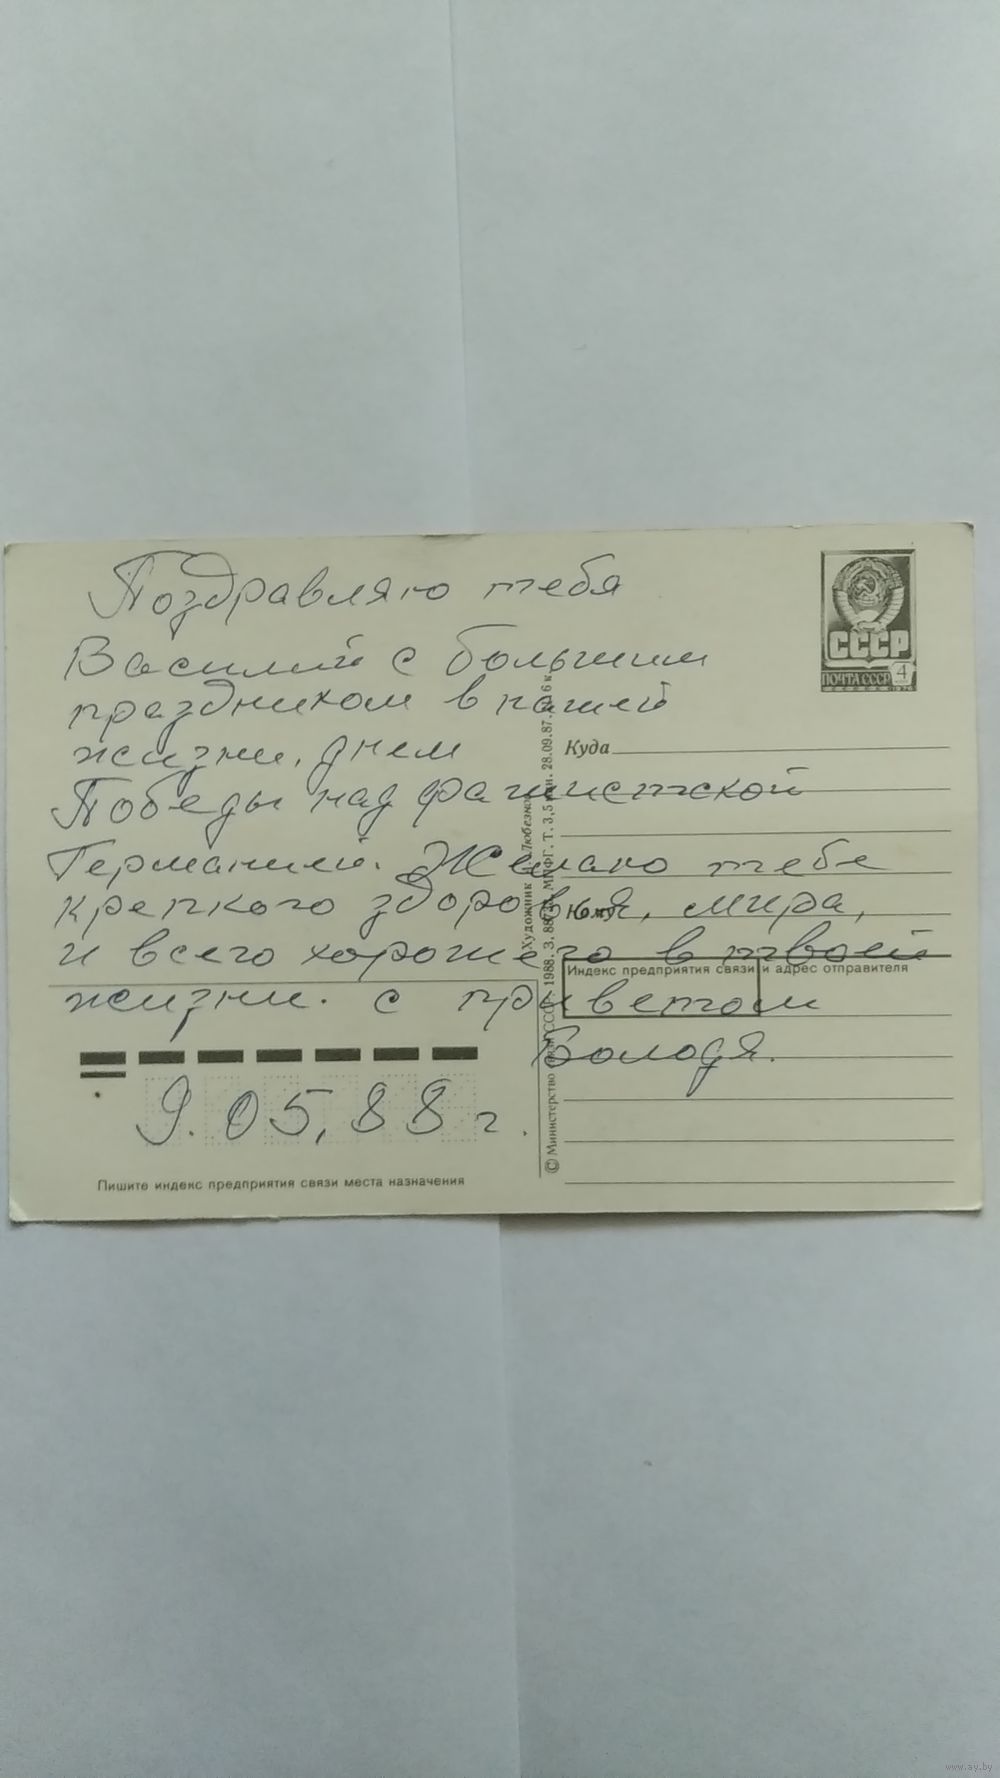 Поздравляю тебя
Василий с большим
праздником в нашей
жизни, днем
Победы над фашистской
Германией. Желаю тебе
крепкого здоровья, мира,
и всего хорошего в твоей
жизни. с приветом
Володя.
9.05,88 г.
СССР
ПОЧТА СССР 4
Куда
Кому
Индекс предприятия связи и адрес отправителя
Пишите индекс предприятия связи места назначения
Художник
© Министерство связи СССР. 1988. З. 88
МПФГ. Т. 3,5 млн. 28.09.87.
6 к.
www.ay.by